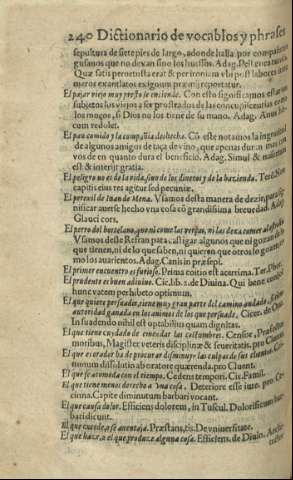 240 Dictionario de vocablos y phrases
sepultura de siete pies de largo, adonde
gusanos que no dexan sino los huessos. Adag.
Quæ satis perortusta erat & periremium vbi post labores
meros exantlatos exiguum præmij reportatur.
El pajar viejo muy presto se enciende. Con esto significamos estar
subjetos los viejos a ser prostrados de las concupiscentias como
los moços, si Dios no los tiene de su mano. Adag. Anus
cum redolet.
El pan comido y la compañia deshecha. Cõ este notamos la ingratitud
de algunos amigos de taça de vino, que apenas duran mas con
vos de en quanto dura el beneficio. Adag. Simul &
est & interijt gratia.
El peligro no es de la vida, sino de los dineros y de la hazienda.
capitis eius res agitur sed pecuniæ.
El perexil de Iuan de Mena. Vsamos desta manera de dezir, para
nificar auerse hecho vna cosa cõ grandissima breuedad. Adag
Glauci cors.
El perro del hortelano, que ni come las verças, ni las dexa comer
Vsamos deste Refran para castigar algunos que ni gozan de lo
que tienen, ni de lo que saben, ni quieren que otros lo gozen:
mo los auarientos. Adag. Canis in præsepi.
El primer encuentro es furioso. Prima coitio est acerrima. Ter.
El prudente es buen adiuino. Cic. lib. 2. de Diuina. Qui bene
hunc vatem perhibeto optimum.
El que quiere persuadir, tiene muy gran parte del camino andado, si tiene
autoridad ganada en los animos de los que persuade. Cicer. de
In suadendo nihil est optabilius quam dignitas.
El que tiene cuydado de emendar las costumbres. Censor, Præfectus
moribus, Magister veteris disciplinæ & seueritatis. pro
El que es orador ha de procurar disminuyr las culpas de sus
nuum dissolutio ab oratore quærenda. pro Cluent.
El que se acomoda con el tiempo. Cedens tempori. Cic. Famil.
El que tiene menos derecho a vna cosa. Deteriore esse iure. pro
cinna. Capite diminutum barbari vocant.
El que causa dolor. Efficiens dolorem, in Tuscul. Dolorificum
bari dicunt.
El que excede, a se auentaja. Præstans, tis. De vniuersitate.
El que haze, a el que produze alguna cosa. Efficiens. de Diuin.